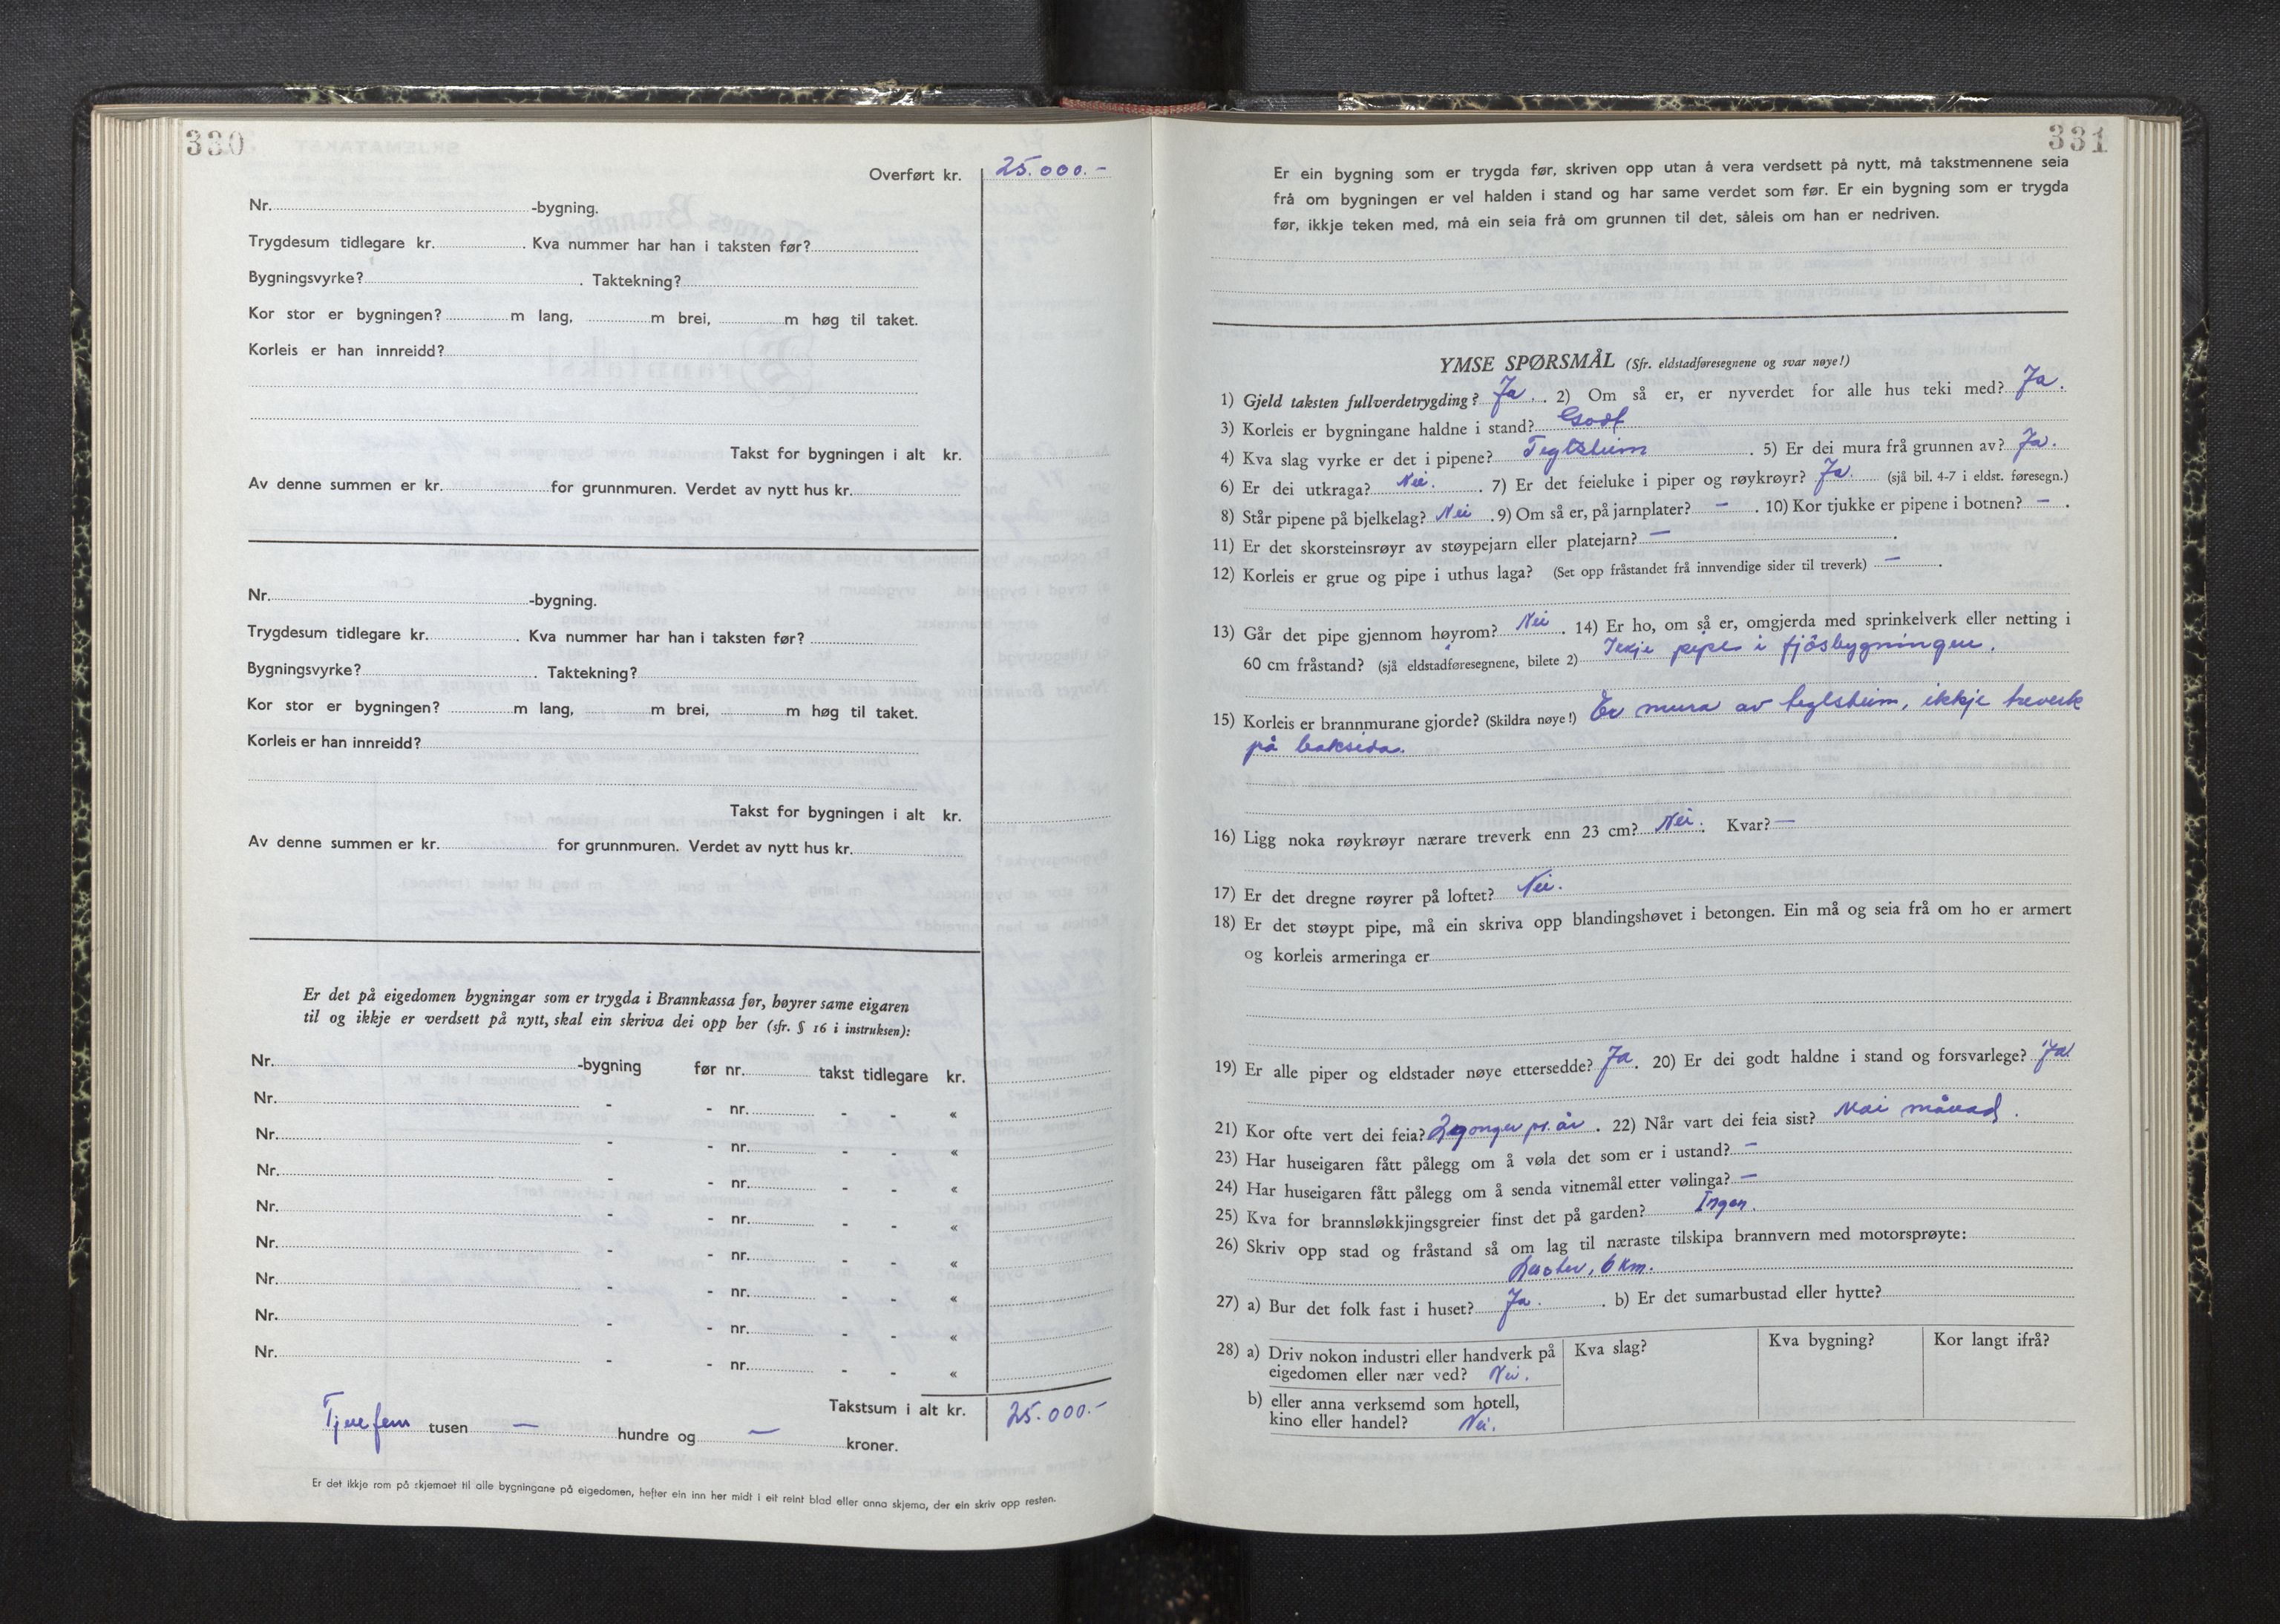 330
Overført kr. 25.000.-
Nr. -bygning.
Trygdesum tidlegare kr. . Kva nummer har han i taksten før?
Bygningsvyrke? . Taktekning?
Kor stor er bygningen? m lang, m brei, m høg til taket.
Korleis er han innreidd?
Takst for bygningen i alt kr.
Av denne summen er kr. for grunnmuren. Verdet av nytt hus kr.
Nr. -bygning.
Trygdesum tidlegare kr. . Kva nummer har han i taksten før?
Bygningsvyrke? . Taktekning?
Kor stor er bygningen? m lang, m brei, m høg til taket.
Korleis er han innreidd?
Takst for bygningen i alt kr.
Av denne summen er kr. for grunnmuren. Verdet av nytt hus kr.
Er det på eigedomen bygningar som er trygda i Brannkassa før, høyrer same eigaren
til og ikkje er verdsett på nytt, skal ein skriva dei opp her (sfr. § 16 i instruksen):
Nr. -bygning før nr. takst tidlegare kr.
Nr. - - nr. - - «
Nr. - - nr. - - «
Nr. - - nr. - - «
Nr. - - nr. - - «
Nr. - - nr. - - «
Nr. - - nr. - - «
Nr. - - nr. - - «
Nr. - - nr. - - «
Takstsum i alt kr. 25.000.-
Tjuefem tusen — hundre og — kroner.
Er det ikkje rom på skjemaet til alle bygningane på eigedomen, hefter ein inn her midt i eit reint blad eller anna skjema, der ein skriv opp resten.
331
Er ein bygning som er trygda før, skriven opp utan å vera verdsett på nytt, må takstmennene seia
frå om bygningen er vel halden i stand og har same verdet som før. Er ein bygning som er trygda
før, ikkje teken med, må ein seia frå om grunnen til det, såleis om han er nedriven.
YMSE SPØRSMÅL (Sfr. eldstadføresegnene og svar nøye!)
1) Gjeld taksten fullverdetrygding? Ja. . 2) Om så er, er nyverdet for alle hus teki med? Ja.
3) Korleis er bygningane haldne i stand? Godt
4) Kva slag vyrke er det i pipene? Teglstein . 5) Er dei mura frå grunnen av? Ja.
6) Er dei utkraga? Nei. . 7) Er det feieluke i piper og røykrøyr? Ja. (sjå bil. 4-7 i eldst. føresegn.)
8) Står pipene på bjelkelag? Nei . 9) Om så er, på jarnplater? — . 10) Kor tjukke er pipene i botnen? — .
11) Er det skorsteinsrøyr av støypejarn eller platejarn? — .
12) Korleis er grue og pipe i uthus laga? (Set opp fråstandet frå innvendige sider til treverk) — .
13) Går det pipe gjennom høyrom? Nei . 14) Er ho, om så er, omgjerda med sprinkelverk eller netting i
60 cm fråstand? (sjå eldstadføresegnene, bilete 2) Ikkje pipe i fjösbygningen.
15) Korleis er brannmurane gjorde? (Skildra nøye!) Er mura av teglstein, ikkje treverk
på baksida.
16) Ligg noka røykrøyr nærare treverk enn 23 cm? Nei. Kvar? —
17) Er det dregne røyrer på loftet? Nei.
18) Er det støypt pipe, må ein skriva opp blandingshøvet i betongen. Ein må og seia frå om ho er armert
og korleis armeringa er
19) Er alle piper og eldstader nøye ettersedde? Ja . 20) Er dei godt haldne i stand og forsvarlege? Ja
21) Kor ofte vert dei feia? 2 gonger pr. år . 22) Når vart dei feia sist? Mai månad .
23) Har huseigaren fått pålegg om å vøla det som er i ustand? —
24) Har huseigaren fått pålegg om å senda vitnemål etter vølinga? —
25) Kva for brannsløkkjingsgreier finst det på garden? Ingen.
26) Skriv opp stad og fråstand så om lag til næraste tilskipa brannvern med motorsprøyte:
Luster, 6 km.
27) a) Bur det folk fast i huset? Ja. . b) Er det sumarbustad eller hytte?
28) a) Driv nokon industri eller handverk på
eigedomen eller nær ved? Nei.
Kva slag? Kva bygning? Kor langt ifrå?
b) eller anna verksemd som hotell,
kino eller handel? Nei.